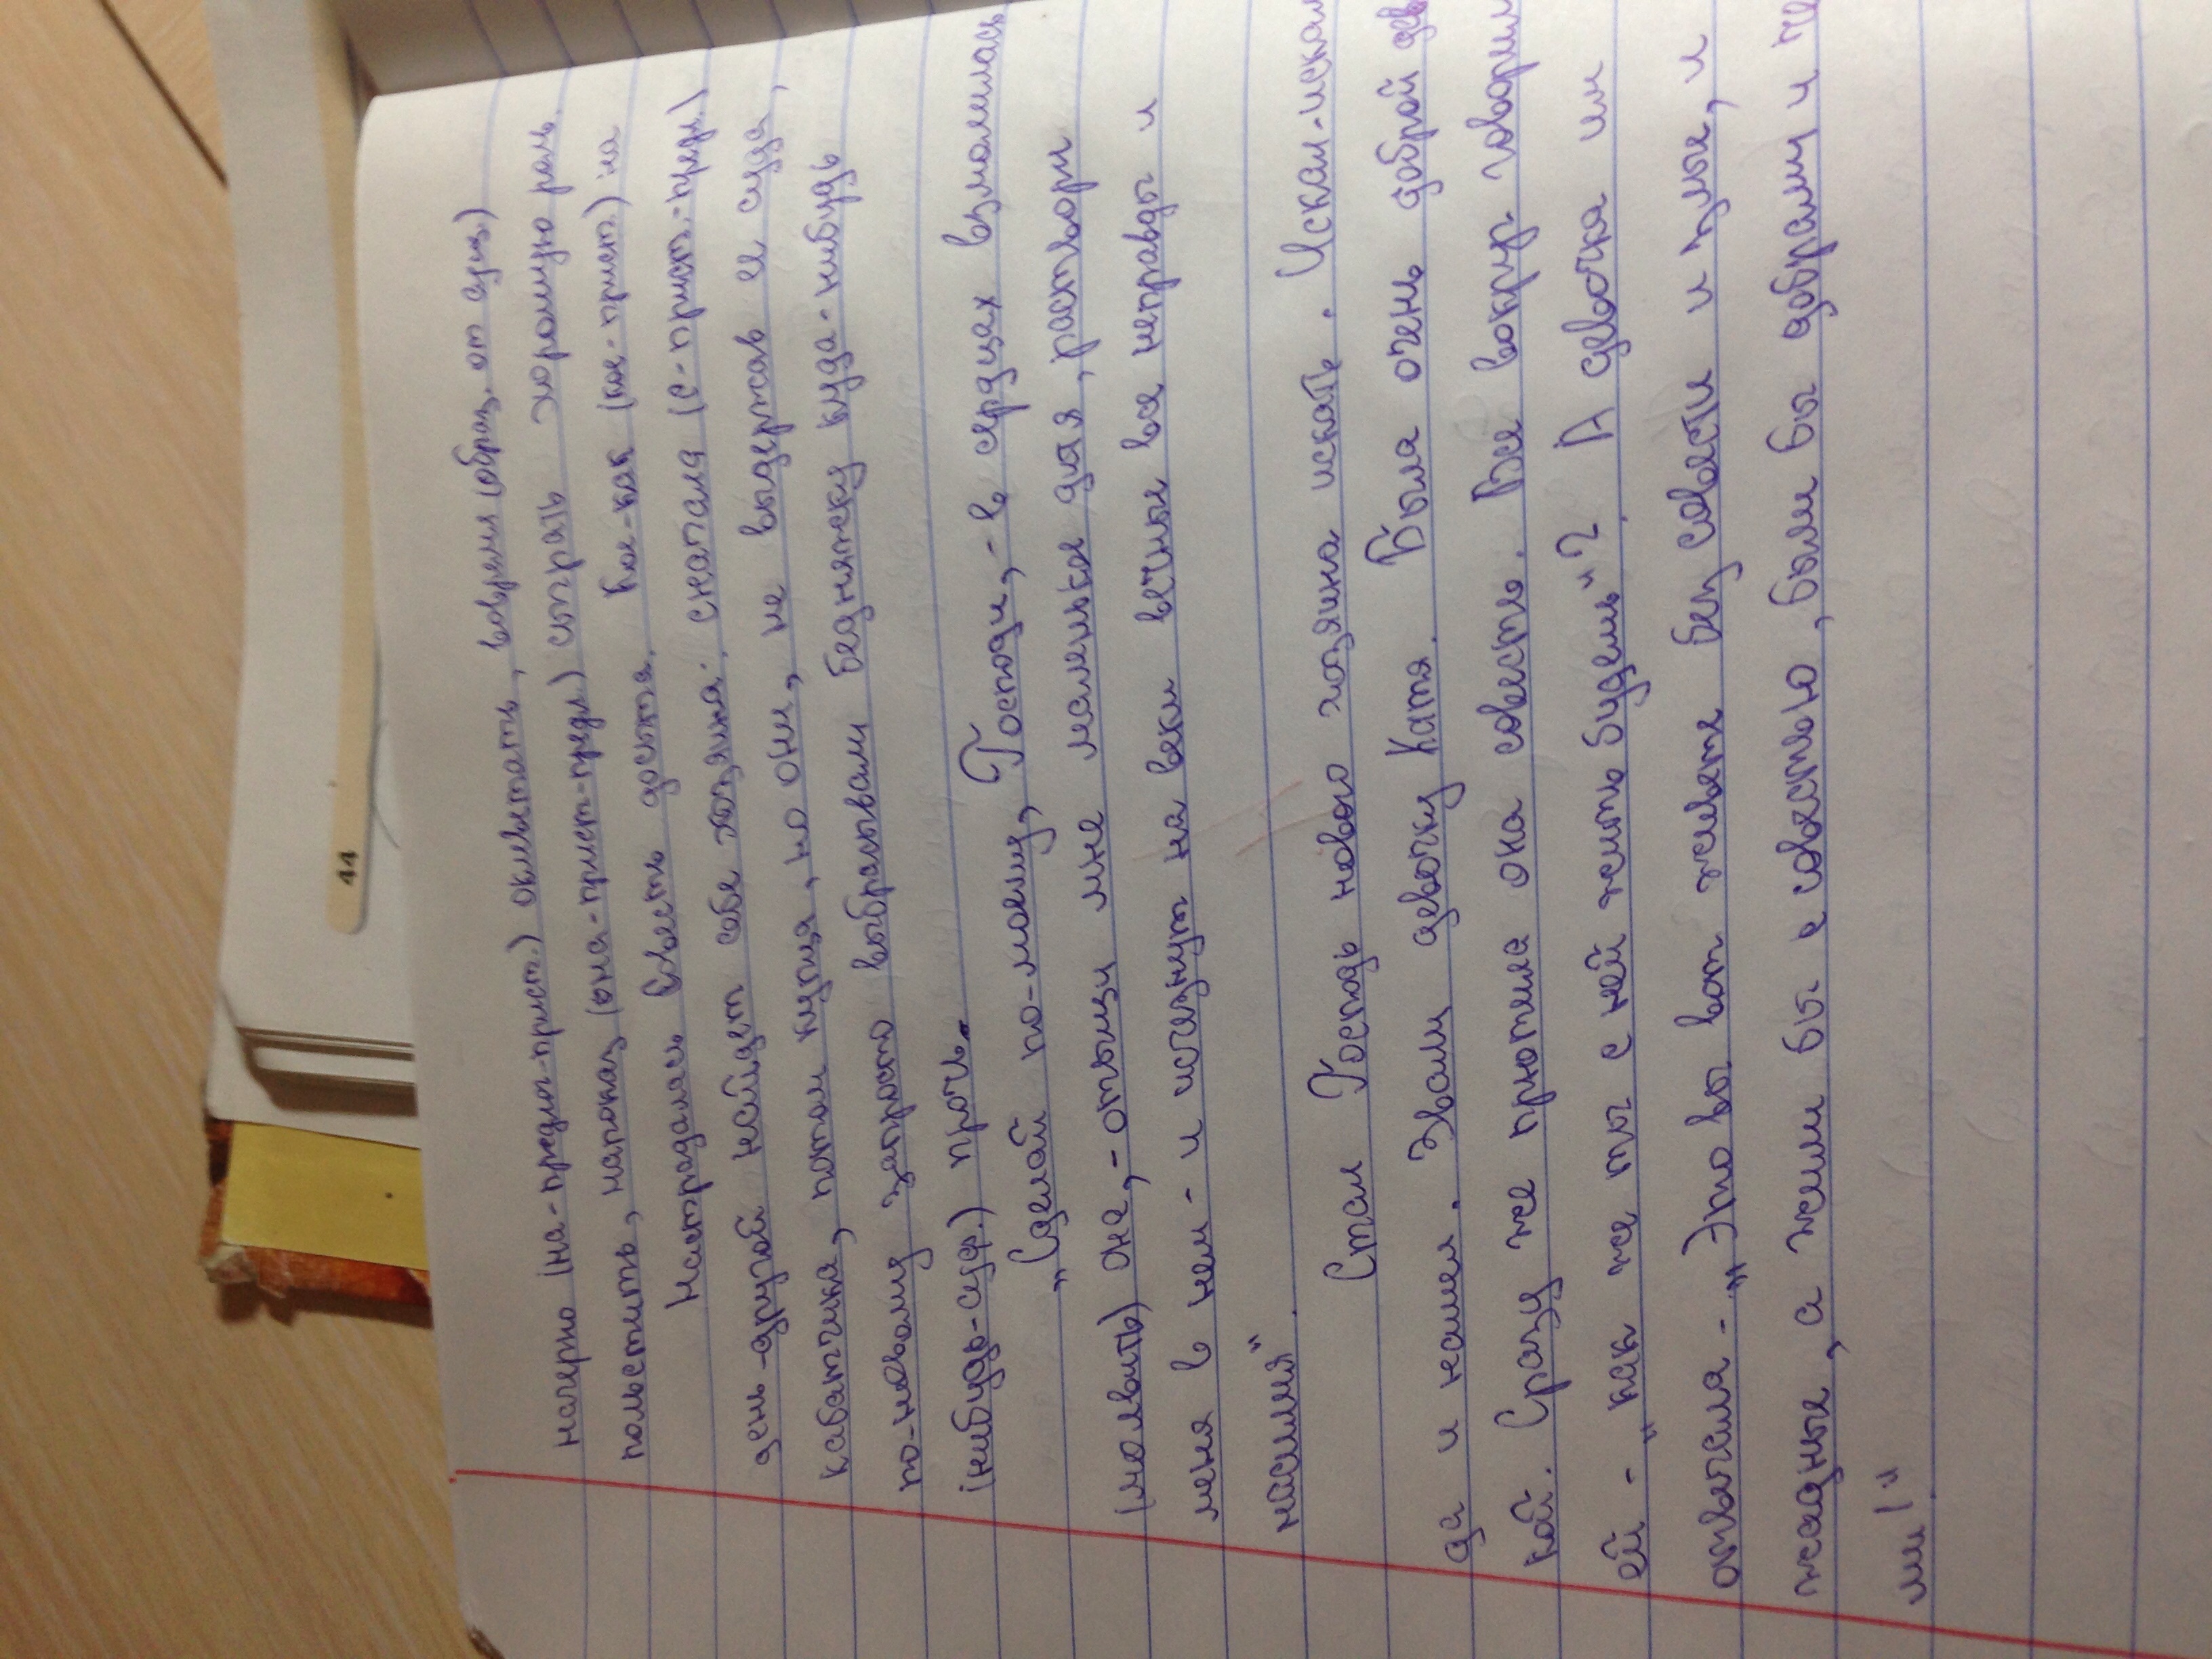 44
начерно (на-предлог-прист.) оклеветать, вовремя (образ. от сущ.)
польстить, напоказ (она-прист-предл.) сыграть хорошую роль.
Настрадалась совесть досыта. Кое-как (кое-прист.) на
день-другой найдет себе хозяина: сначала (с-прист.-предл.)
кабатчика, потом купца, но они, не выдержав и суда,
по-новому запросто выбрасывали бедняжку куда-нибудь
(нибудь-суф.) прочь.
„Сделай по-моему, Господи,- в сердцах взмолилась
(молвить) она,- отыщи мне маленькое дитя, раствори
меня в нем - и исчезнут на веки вечные все неправды и
насилия".
Стал Господь нового хозяина искать. Искал-искал
да и нашел. Звали девочку Катя. Была очень доброй дев
кой. Сразу же приютила она совесть. Все вокруг говорили
ей - „как же ты с ней жить будешь"? А девочка им
отвечала - „Это вы вот живете без совести и злые, и
жадные, а жили бы с совестью, были бы добрыми и че
ми!"